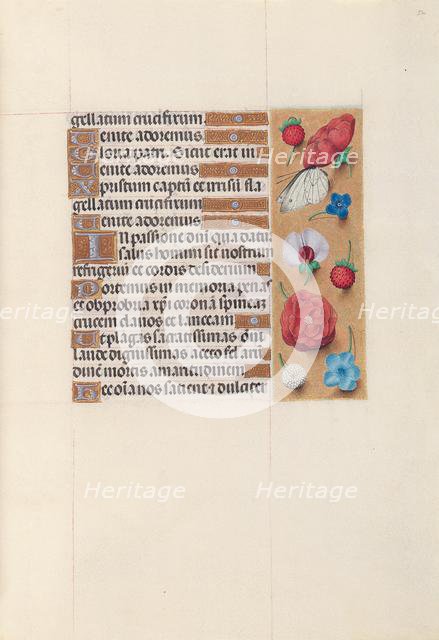 gellatum crucifixum.
Venite adoremus
Gloria patri. Sicut erat in
Venite adoremus
Xpristum captu et irrisu fla
gellatum crucifixum.
Venite adoremus
In passione dni qua datur
salus homini sit nostrum
refrigeriu et cordis desiderium
Portemus in memoria penas
et obprobria xpi corona spineam
crucem clavos et lanceam
Et plagas sacratissimas omi
laude dignissimas aceto fel aru
dine mortis amaritudinem
Hec omia nos sacient et dulciter
heritage
Heritage
Heritage
Heritage
Heritage